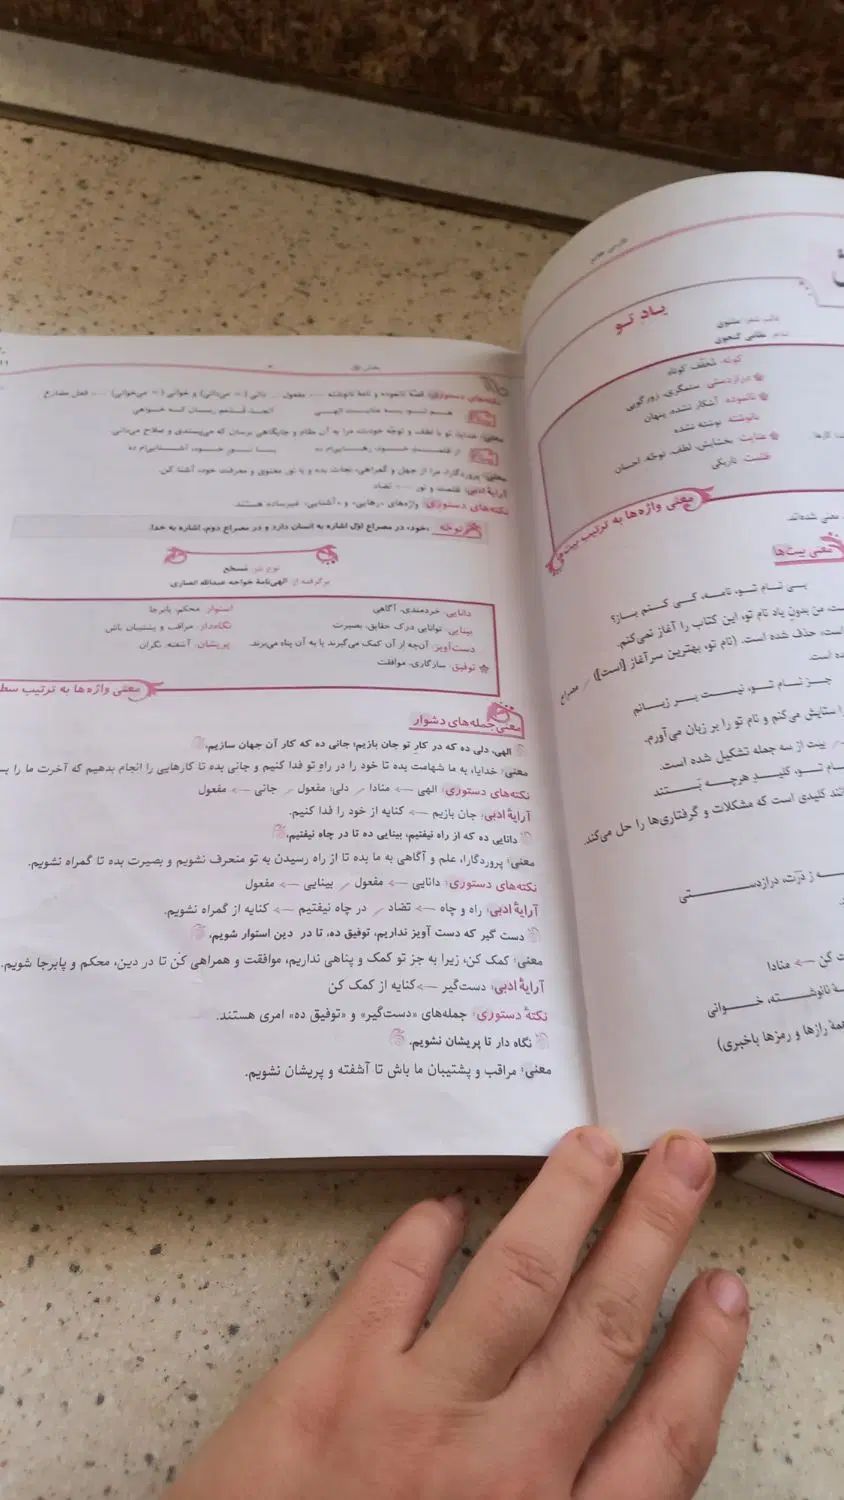 فارسی هفتم
یـاد تـو
قالب شعر: مثنوی
شاعر: نظامی گنجوی
کوته: مُخفّف کوتاه
درازدستی: ستمگری، زورگویی
نانموده: آشکار نشده، پنهان
نانوشته: نوشته نشده
عنایت: بخشایش، لطف، توجّه، احسان
ظلمت: تاریکی
معنی واژه‌ها به ترتیب بیت‌ها
معنی شده‌اند.
معنی بیت‌ها
بی نـام تـو، نامـه، کـی کـنم بـاز؟
من بدونِ یاد نام تو، این کتاب را آغاز نمی‌کنم.
است، حذف شده است. (نام تو، بهترین سرآغاز [است]) / مصراع
ده است.
جـز نـام تـو، نیسـت بـر زبـانم
ستایش می‌کنم و نام تو را بر زبان می‌آورم.
بیت از سه جمله تشکیل شده است.
ـام تـو، کلیـدِ هرچـه بَـستند
انند کلیدی است که مشکلات و گرفتاری‌ها را حل می‌کند.
ـه ز درَت، درازدســـتی
کن ← منادا
ـة نانوشـــته، خـــوانی
همهٔ رازها و رمزها باخبری)
بخش اوّل
نکته‌های دستوری: قصّهٔ نانموده و نامهٔ نانوشته ← مفعول / دانی (= می‌دانی) و خوانی (= می‌خوانی) ← فعل مضارع
هـم تـو بـه عنایـت الهـی آنجـا قـدمم رسـان کـه خـواهی
معنی: خدایا، تو با لطف و توجّه خودت، مرا به آن مقام و جایگاهی برسان که می‌پسندی و صلاح می‌دانی.
از ظلمـت خـود رهـایی‌ام ده بـا نـور خـود، آشنـایی‌ام ده
معنی: پروردگارا، مرا از جهل و گمراهی، نجات بده و با نور معنوی و معرفت خود، آشنا کن.
آرایهٔ ادبی: ظلمت و نور ← تضاد
نکته‌های دستوری: واژه‌های «رهایی» و «آشنایی» غیرساده هستند.
توجّه «خود» در مصراع اوّل اشاره به انسان دارد و در مصراع دوم، اشاره به خدا.
نوع نثر: مُسجّع
برگرفته از: الهی‌نامهٔ خواجه عبدالله انصاری
دانایی: خردمندی، آگاهی استوار: محکم، پابرجا
بینایی: توانایی درک حقایق، بصیرت نگاه‌دار: مراقب و پشتیبان باش
دست‌آویز: آن‌چه از آن کمک می‌گیرند یا به آن پناه می‌برند. پریشان: آشفته، نگران
توفیق: سازگاری، موافقت
معنی واژه‌ها به ترتیب سط
معنی جمله‌های دشوار
الهی، دلی ده که در کارِ تو جان بازیم؛ جانی ده که کار آن جهان سازیم.
معنی: خدایا، به ما شهامت بده تا خود را در راهِ تو فدا کنیم و جانی بده تا کارهایی را انجام بدهیم که آخرت ما را بس
نکته‌های دستوری: الهی ← منادا / دلی: مفعول / جانی ← مفعول
آرایهٔ ادبی: جان بازیم ← کنایه از خود را فدا کنیم.
دانایی ده که از راه نیفتیم، بینایی ده تا در چاه نیفتیم.
معنی: پروردگارا، علم و آگاهی به ما بده تا از راه رسیدن به تو منحرف نشویم و بصیرت بده تا گمراه نشویم.
نکته‌های دستوری: دانایی ← مفعول / بینایی ← مفعول
آرایهٔ ادبی: راه و چاه ← تضاد / در چاه نیفتیم ← کنایه از گمراه نشویم.
دست گیر که دست آویز نداریم، توفیق ده، تا در دین استوار شویم.
معنی: کمک کن، زیرا به جز تو کمک و پناهی نداریم، موافقت و همراهی کن تا در دین، محکم و پابرجا شویم.
آرایهٔ ادبی: دست‌گیر ← کنایه از کمک کن
نکتهٔ دستوری: جمله‌های «دست‌گیر» و «توفیق ده» امری هستند.
نگاه دار تا پریشان نشویم.
معنی: مراقب و پشتیبان ما باش تا آشفته و پریشان نشویم.